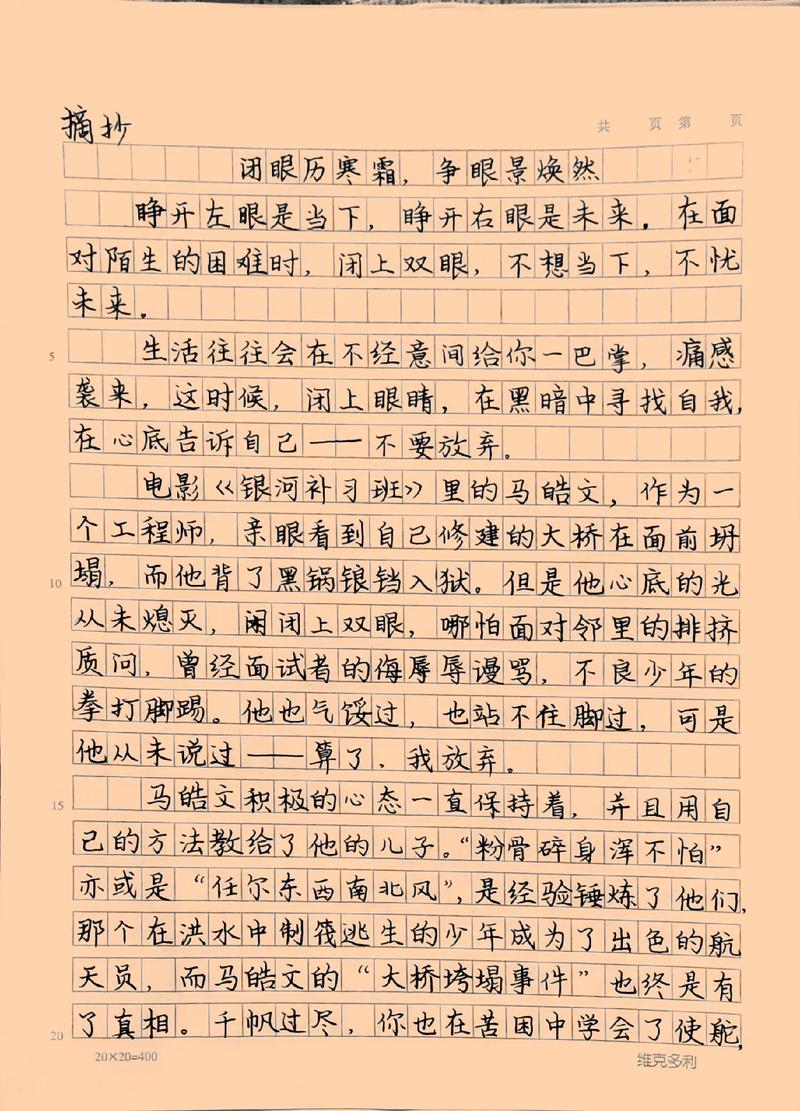 摘抄
共 页 第 页
闭眼历寒霜，争眼景焕然
睁开左眼是当下，睁开右眼是未来。在面
对陌生的困难时，闭上双眼，不想当下，不忧
未来。
5 生活往往会在不经意间给你一巴掌，痛感
袭来，这时候，闭上眼睛，在黑暗中寻找自我，
在心底告诉自己——不要放弃。
电影《银河补习班》里的马皓文，作为一
个工程师，亲眼看到自己修建的大桥在面前坍
10 塌，而他背了黑锅锒铛入狱。但是他心底的光
从未熄灭，闭上双眼，哪怕面对邻里的排挤
质问，曾经面试者的侮辱辱谩骂，不良少年的
拳打脚踢。他也气馁过，也站不住脚过，可是
他从未说过——算了，我放弃。
15 马皓文积极的心态一直保持着，并且用自
己的方法教给了他的儿子。“粉骨碎身浑不怕”
亦或是“任尔东西南北风”，是经验锤炼了他们，
那个在洪水中制筏逃生的少年成为了出色的航
天员，而马皓文的“大桥垮塌事件”也终是有
20 了真相。千帆过尽，你也在苦困中学会了使舵，
20×20=400
维克多利